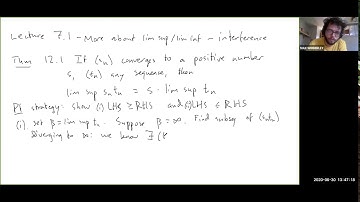 Lecture 7.1 - More about lim sup/lim inf - interference
Thm 12.1 If (sn) converges to a positive number
s, (tn) any sequence, then
lim sup sntn = s · lim sup tn
Pf strategy: show (i) LHS ≥ RHS and (ii) LHS ≤ RHS
(i) set β = lim sup tn. Suppose β = ∞. Find subseq of (sntn)
diverging to ∞: we know ∃ (
2020-06-30 13:47:18